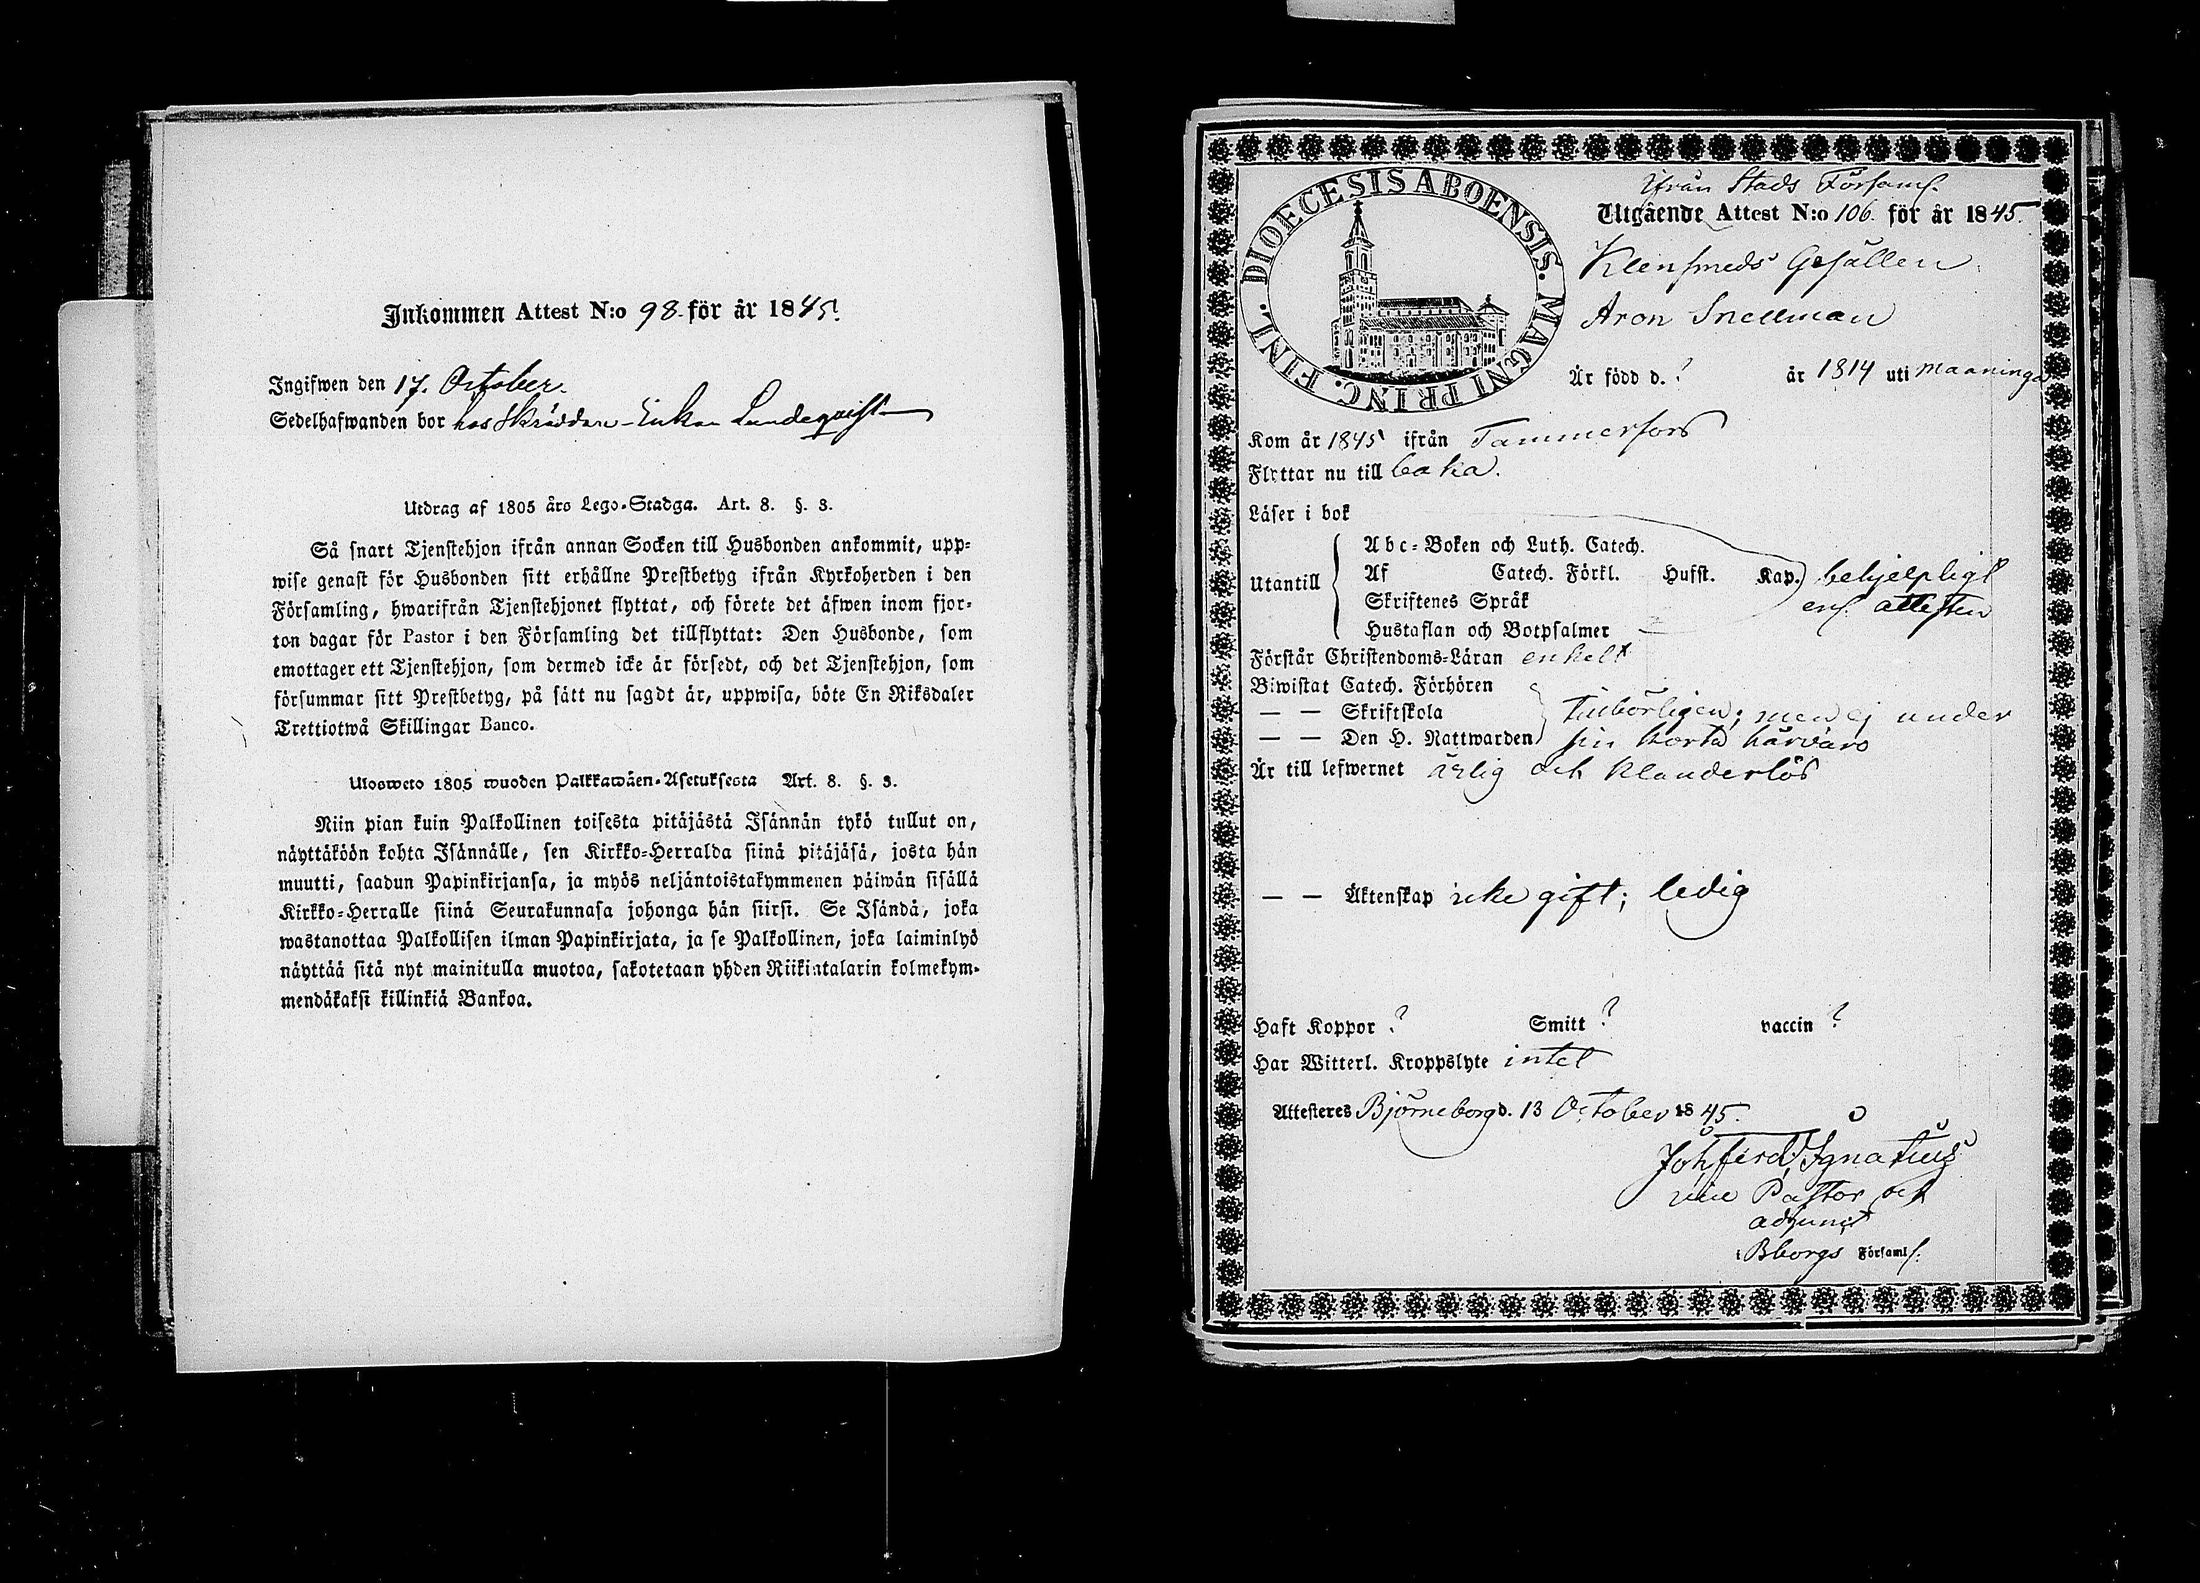 Inkommen Attest N:o 98. för år 1845.
Ingifwen den 17. October.
Sedelhafwanden bor hos Skräddare-Enkan Lundeqvist
Utdrag af 1805 års Lego-Stadga. Art. 8. §. 3.
Så snart Tjenstehjon ifrån annan Socken till Husbonden ankommit, upp-
wise genast för Husbonden sitt erhållne Prestbetyg ifrån Kyrkoherden i den
Församling, hwarifrån Tjenstehjonet flyttat, och förete det äfwen inom fjor-
ton dagar för Pastor i den Församling det tillflyttat: Den Husbonde, som
emottager ett Tjenstehjon, som dermed icke är försedt, och det Tjenstehjon, som
försummar sitt Prestbetyg, på sätt nu sagdt är, uppwisa, böte En Riksdaler
Trettiotwå Skillingar Banco.
Ulosweto 1805 wuoden Palkkawäen-Asetuksesta Art. 8. §. 3.
Niin pian kuin Palkollinen toisesta pitäjästä Isännän tykö tullut on,
näyttäköön kohta Isännälle, sen Kirkko-Herralda siinä pitäjäsä, josta hän
muutti, saadun Papinkirjansa, ja myös neljäntoistakymmenen päiwän sisällä
Kirkko-Herralle siinä Seurakunnasa johonga hän siirsi. Se Isändä, joka
wastanottaa Palkollisen ilman Papinkirjata, ja se Palkollinen, joka laiminlyö
näyttää sitä nyt mainitulla muotoa, sakotetaan yhden Riikintalarin kolmekym-
mendäkaksi killinkiä Bankoa.
DIOECESIS ABOENSIS. MAGNI PRINC. FINL.
Ifrån Stads Församl.
Utgående Attest N:o 106. för år 1845.
Klensmeds Gesällen
Aron Snellman
Är född d. ? år 1814 uti Maaninga
Kom år 1845 ifrån Tammerfors
Flyttar nu till baka.
Läser i bok
Utantill
Abc-Boken och Luth. Catech.
Af Catech. Förkl. Husst. Kap.
Skriftenes Språk
Hustaflan och Botpsalmer
behjelpligt
enl. attesten
Förstår Christendoms-Läran enkelt
Biwistat Catech. Förhören
— — Skriftskola tillbörligen; men ej under
— — Den H. Nattwarden sin korta härvaro
Är till lefwernet ärlig och klanderlös
— — Äktenskap icke gift; ledig
Haft Koppor ? Smitt ? vaccin ?
Har Witterl. Kroppslyte intet
Attesteras Björneborg d. 13 October 1845.
Joh. Ferd. Ignatius
vice Pastor och
adjunct
i Bborgs Församl.